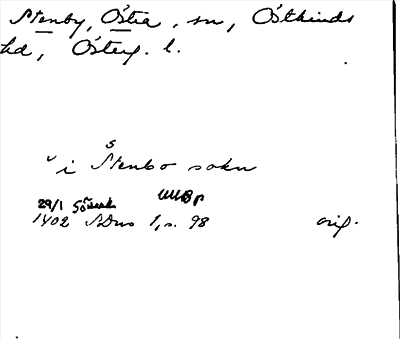 Stenby, Östra, sn, Östkinds
hd, Österg. l.
i Stenbo sokn
29/1
1402 SDns 1, s. 98 orig.